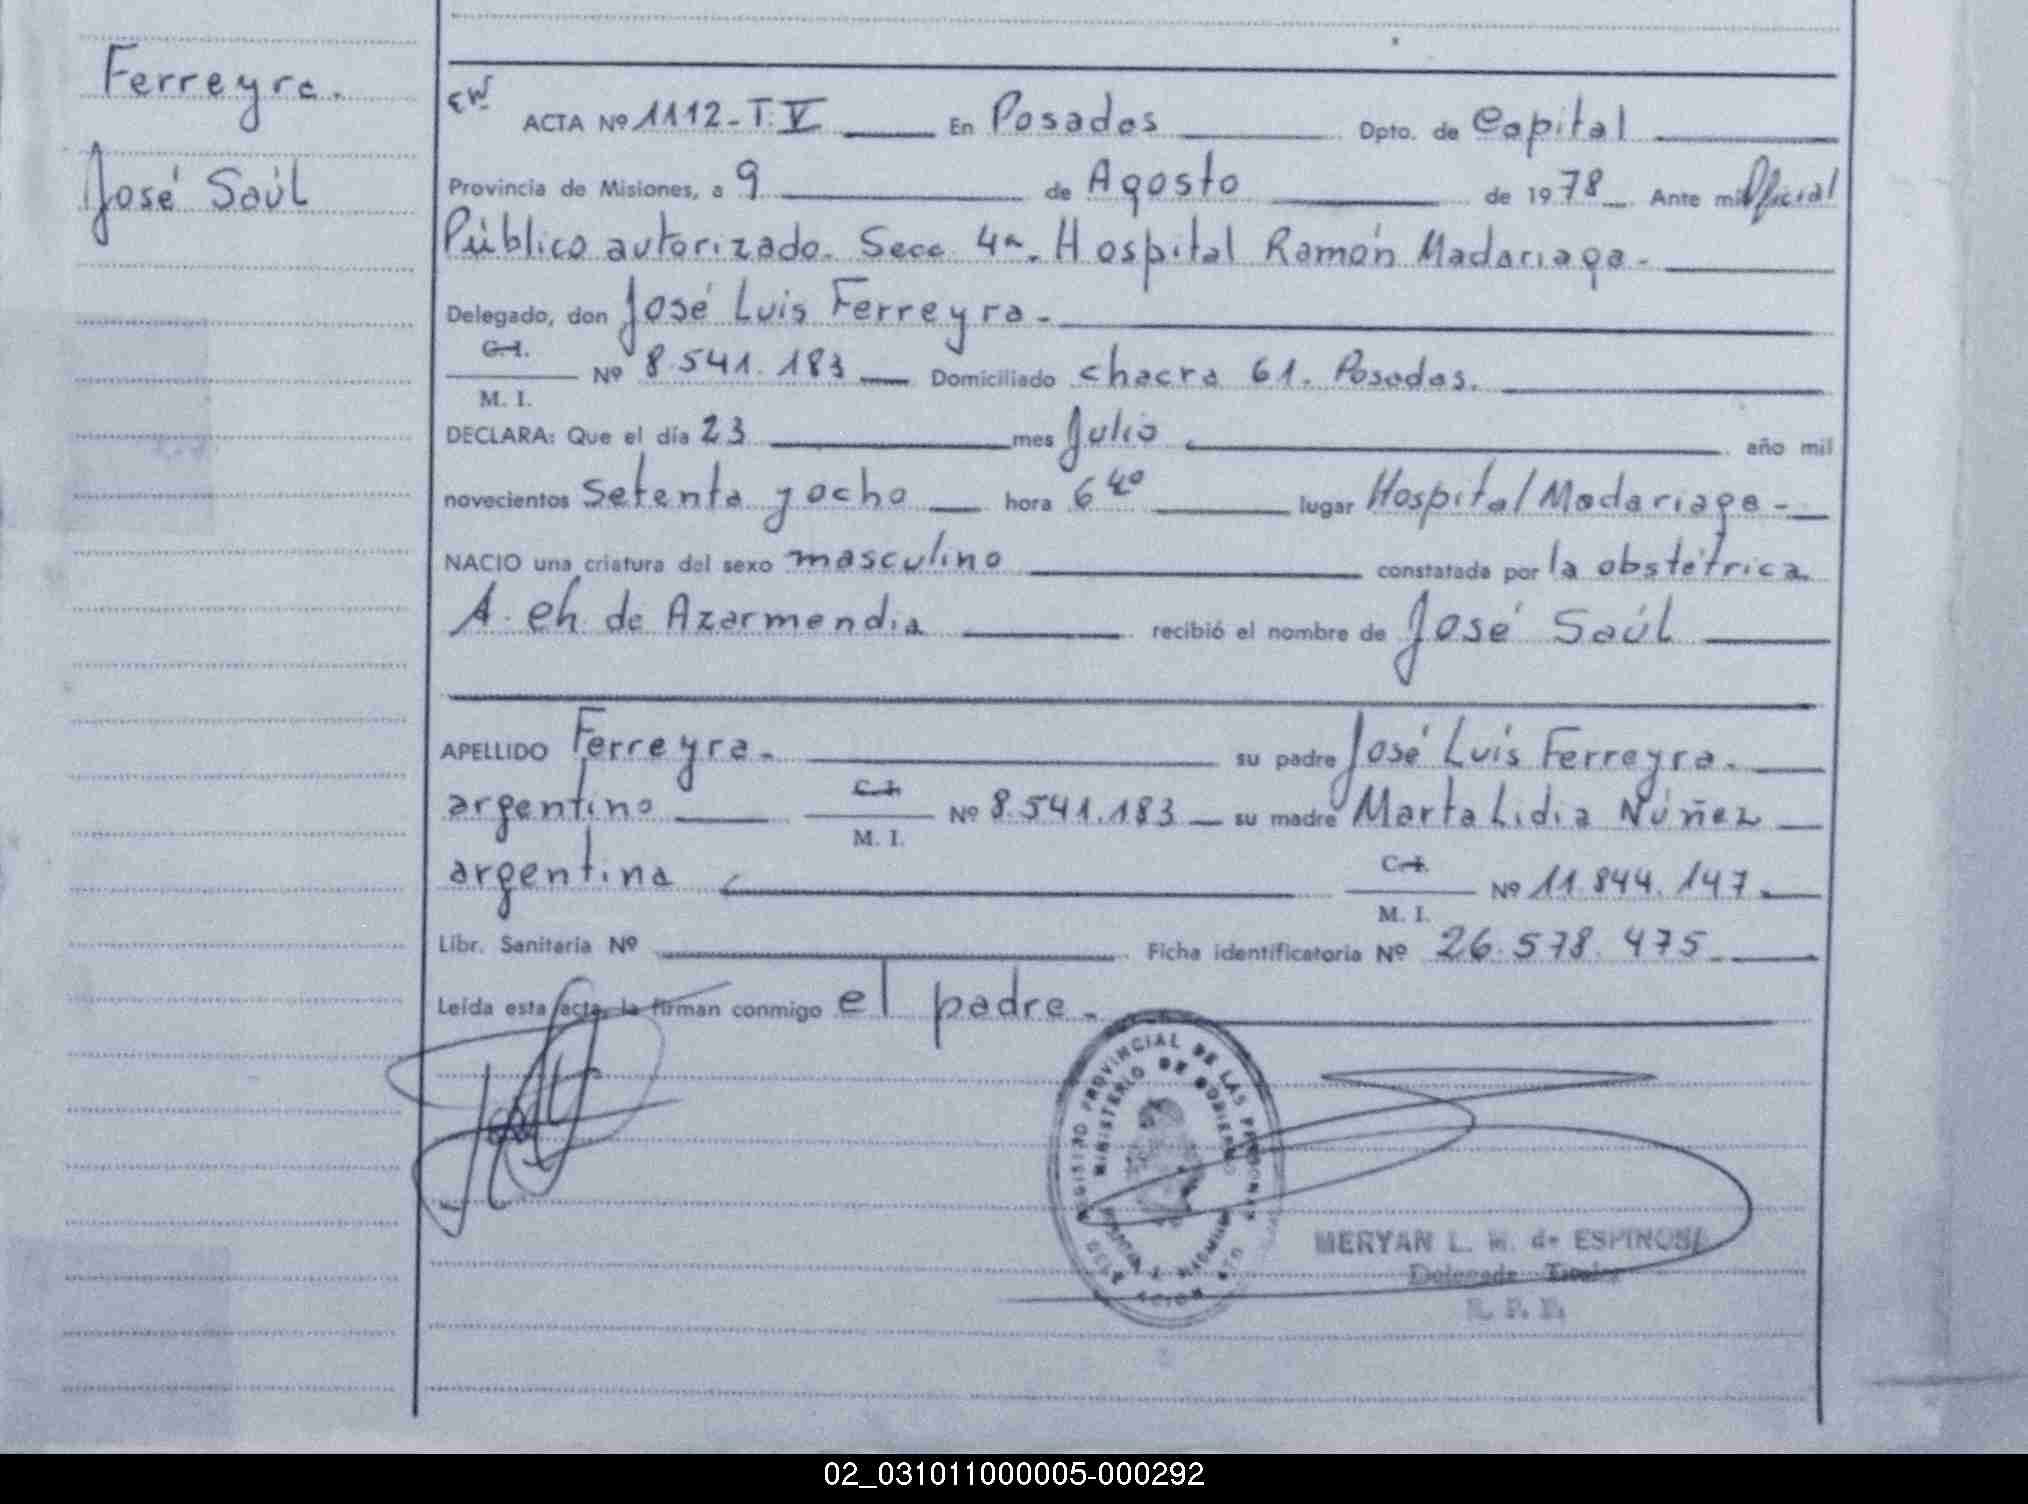 Ferreyra.
José Saúl
ACTA Nº 1112-T.V En Posadas Dpto. de Capital
Provincia de Misiones, a 9 de Agosto de 1978 Ante mi Oficial
Público autorizado. Secc. 4ª. Hospital Ramón Madariaga-
Delegado, don José Luis Ferreyra-
C.I.
M. I.
Nº 8.541.183 Domiciliado chacra 61. Posadas.
DECLARA: Que el día 23 mes Julio año mil
novecientos setenta y ocho hora 6 40 lugar Hospital Madariaga-
NACIO una criatura del sexo masculino constatada por la obstétrica
A. eh. de Azarmendia recibió el nombre de José Saúl
APELLIDO Ferreyra- su padre José Luis Ferreyra-
argentino C.I. M. I. Nº 8.541.183 su madre Marta Lidia Núñez
argentina C.I. M. I. Nº 11.844.147-
Libr. Sanitaria Nº Ficha identificatoria Nº 26.578.475-
Leída esta acta, la firman conmigo el padre-
REGISTRO PROVINCIAL DE LAS PERSONAS
MINISTERIO DE GOBIERNO
MERYAN L. M. de ESPINOSA
Delegada Titular
R. P. P.
02_031011000005-000292